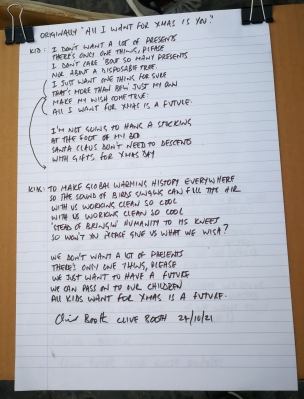 ORIGINALLY "ALL I WANT FOR XMAS IS YOU"
KID: I DON'T WANT A LOT OF PRESENTS
THERE'S ONLY ONE THING, PLEASE
I DON'T CARE 'BOUT SO MANY PRESENTS
NOR ABOUT A DISPOSABLE TREE.
I JUST WANT ONE THING FOR SURE
THAT'S MORE THAN JUST MY OWN
MAKE MY WISH COME TRUE:
ALL I WANT FOR XMAS IS A FUTURE.
I'M NOT GOING TO HANG A STOCKING
AT THE FOOT OF MY BED
SANTA CLAUS DON'T NEED TO DESCENTS
WITH GIFTS FOR XMAS DAY
TO MAKE GLOBAL WARMING HISTORY EVERYWHERE
SO THE SOUND OF BIRDS SINGING CAN FILL THE AIR
WITH US WORKING CLEAN SO COOL
WITH US WORKING CLEAN SO COOL
'STEAD OF BRINGIN' HUMANITY TO ITS KNEES
SO WON'T YOU PLEASE GIVE US WHAT WE WISH?
WE DON'T WANT A LOT OF PRESENTS
THERE'S ONLY ONE THING, PLEASE
WE JUST WANT TO HAVE A FUTURE
WE CAN PASS ON TO OUR CHILDREN
ALL KIDS WANT FOR XMAS IS A FUTURE.
Clive Booth CLIVE BOOTH 24/10/21